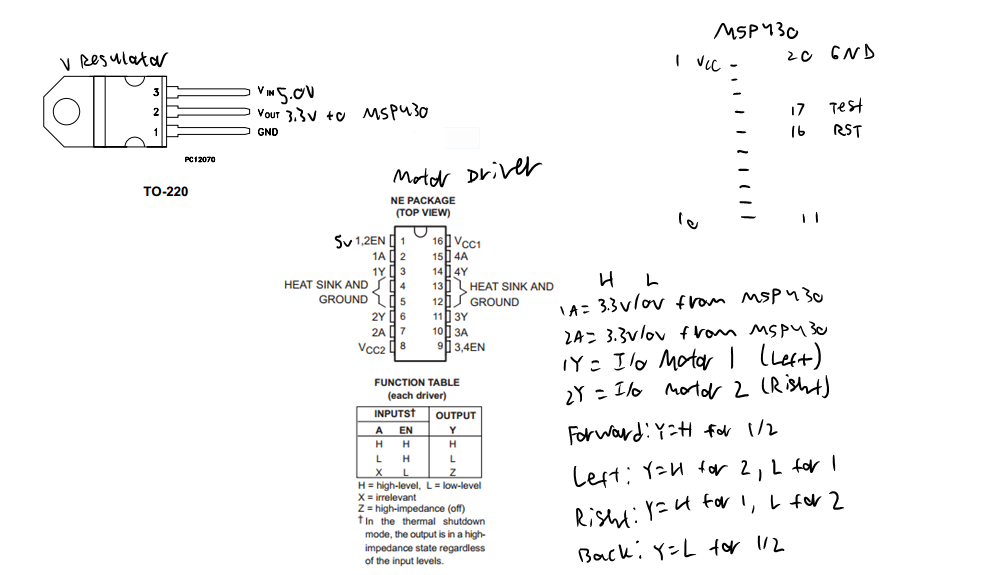 V Regulator
3 VIN 5.0V
2 VOUT 3.3V to MSP430
1 GND
PC12070
TO-220
MSP430
1 VCC 20 GND
17 Test
16 RST
10 11
Motor Driver
NE PACKAGE
(TOP VIEW)
5v 1,2EN 1 16 VCC1
1A 2 15 4A
1Y 3 14 4Y
HEAT SINK AND 4 13 HEAT SINK AND
GROUND 5 12 GROUND
2Y 6 11 3Y
2A 7 10 3A
VCC2 8 9 3,4EN
FUNCTION TABLE
(each driver)
INPUTS† OUTPUT
A EN Y
H H H
L H L
X L Z
H = high-level, L = low-level
X = irrelevant
Z = high-impedance (off)
† In the thermal shutdown
mode, the output is in a high-
impedance state regardless
of the input levels.
H L
1A = 3.3v/0v from MSP430
2A = 3.3v/0v from MSP430
1Y = I/o Motor 1 (Left)
2Y = I/o motor 2 (Right)
Forward: Y=H for 1/2
Left: Y=H for 2, L for 1
Right: Y=H for 1, L for 2
Back: Y=L for 1/2